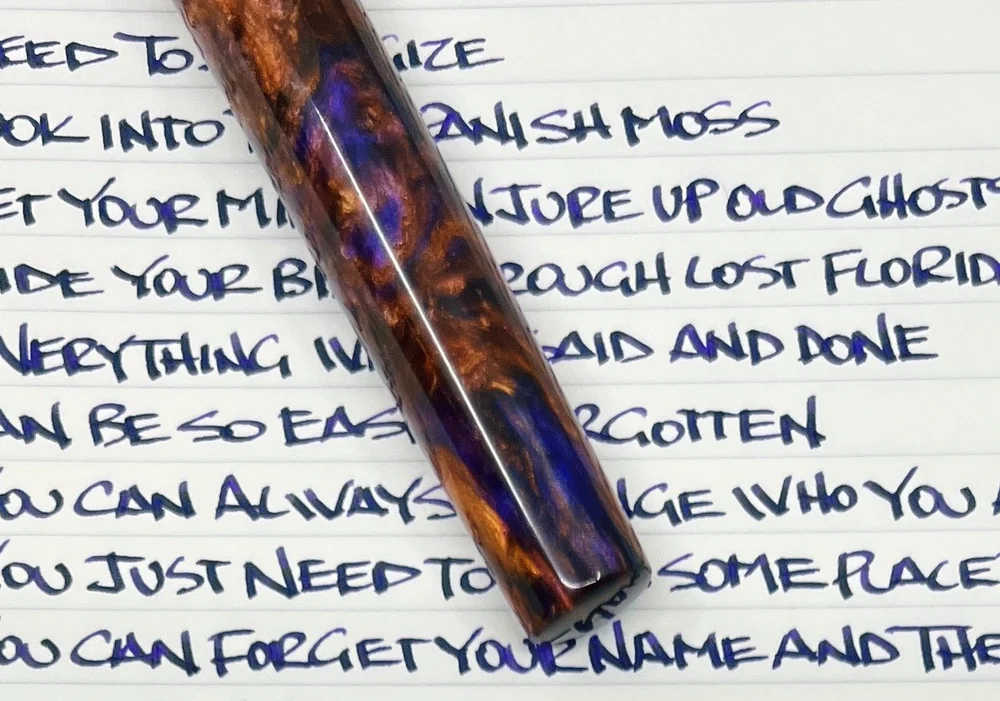 EED TO IZE
OOK INTO ANISH MOSS
ET YOUR MI NJURE UP OLD GHOSTS
IDE YOUR BI ROUGH LOST FLORID
VERYTHING IS AID AND DONE
AN BE SO EAS RGOTTEN
OU CAN ALWAYS NGE WHO YOU A
YOU JUST NEED TO SOME PLACE
YOU CAN FORGET YOUR NAME AND THE